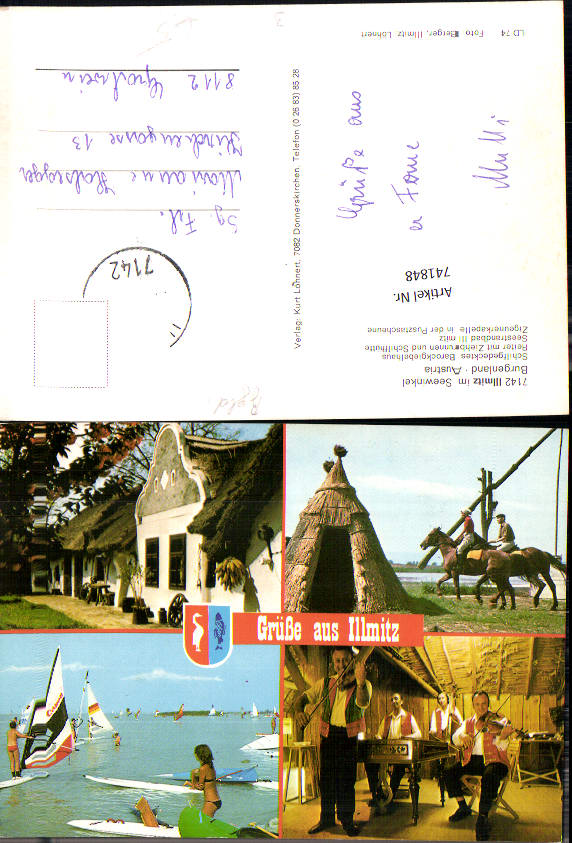 7142 Illmitz im Seewinkel
Burgenland · Austria
Schilfgedecktes Barockgiebelhaus
Reiter mit Ziehbrunnen und Schilfhütte
Seestrandbad Illmitz
Zigeunerkapelle in der Pusztascheune
Artikel Nr.
741848
Grüße aus
Mutti
LD 74 Foto Berger, Illmitz Löhnert
Verlag: Kurt Löhnert, 7082 Donnerskirchen, Telefon (0 26 83) 85 28
7142
Bgld.
Sg. Frl.
Marianne
13
8112 Gratwein
Grüße aus Illmitz
Canon